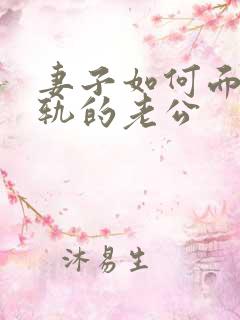 妻子如何而
轨的老公
沐易生